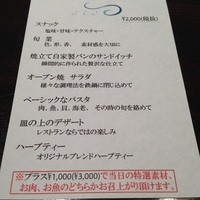 ¥2,000(税抜)
スナック
塩味・甘味・テクスチャー
旬 菜
色、形、香、 素材感を大切に
焼立て自家製パンのサンドイッチ
瞬間的に作られた贅沢な仕立て
オーブン焼 サラダ
様々な調理法を鉄鍋に閉じ込めて
ベーシックなパスタ
肉、魚、貝、海老、その時の旬を絡めて
皿の上のデザート
レストランならではの楽しみ
ハーブティー
オリジナルブレンドハーブティー
※プラス¥1,000(¥3,000)で当日の特選素材、
お肉、お魚のどちらかお召上がり頂けます。